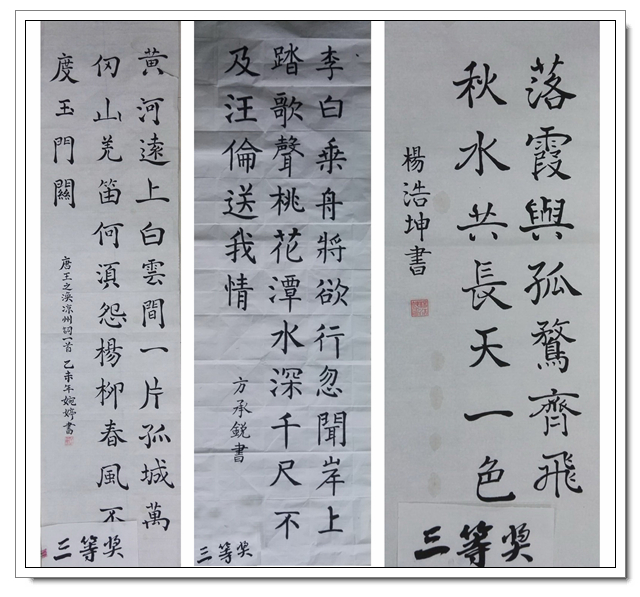 黃河遠上白雲間一片孤城萬
仞山羌笛何湏怨楊柳春風不
度玉門關
唐王之渙凉州詞一首 乙未年婉婷書
三等奖
李白乘舟將欲行忽聞岸上
踏歌聲桃花潭水深千尺不
及汪倫送我情
方承銳書
三等奖
落霞與孤鶩齊飛
秋水共長天一色
楊浩坤書
三等奖